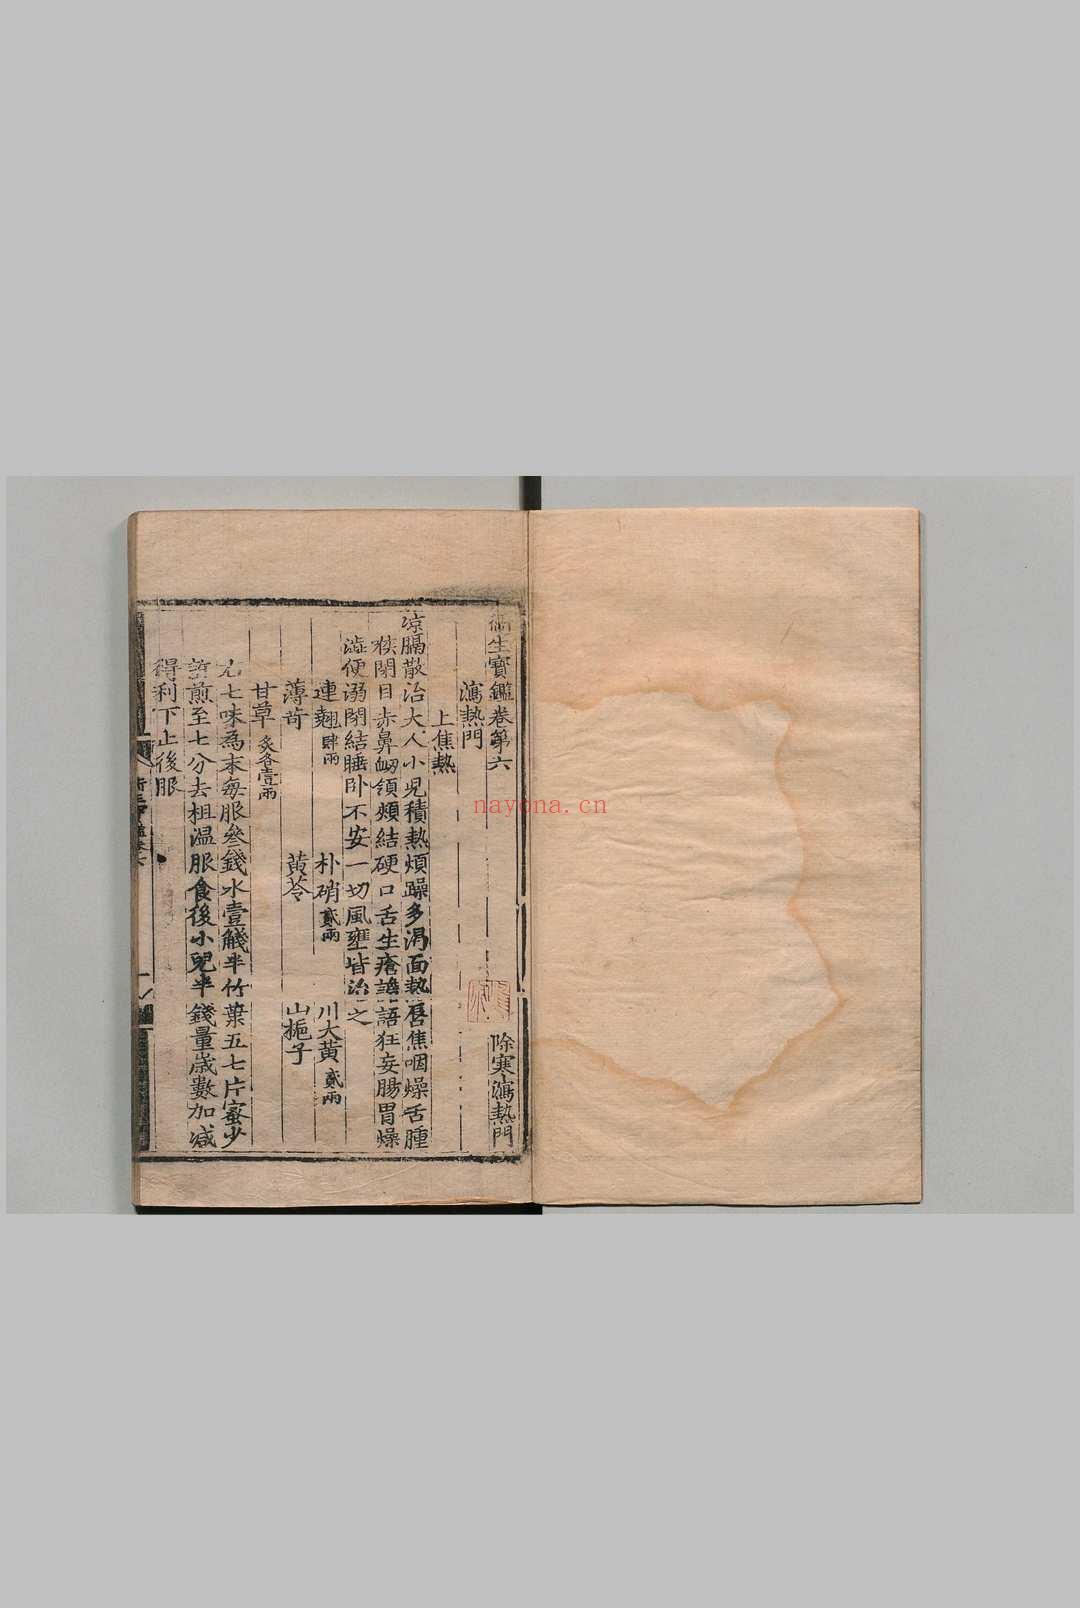 衛生寶鑑卷第六 除寒瀉熱門
瀉熱門
上焦熱
涼膈散治大人小兒積熱煩躁多渴面熱唇焦咽燥舌腫
喉閉目赤鼻衂頷頰結硬口舌生瘡譫語狂妄腸胃燥
澁便溺閉結睡卧不安一切風壅皆治之
連翹肆兩 朴硝貳兩 川大黄貳兩
薄苛 黄芩 山梔子
甘草炙各壹兩
右七味為末每服叄錢水壹觥半竹葉五七片蜜少
許煎至七分去柤温服食後小兒半錢量歲數加减
得利下止後服
nayona.cn